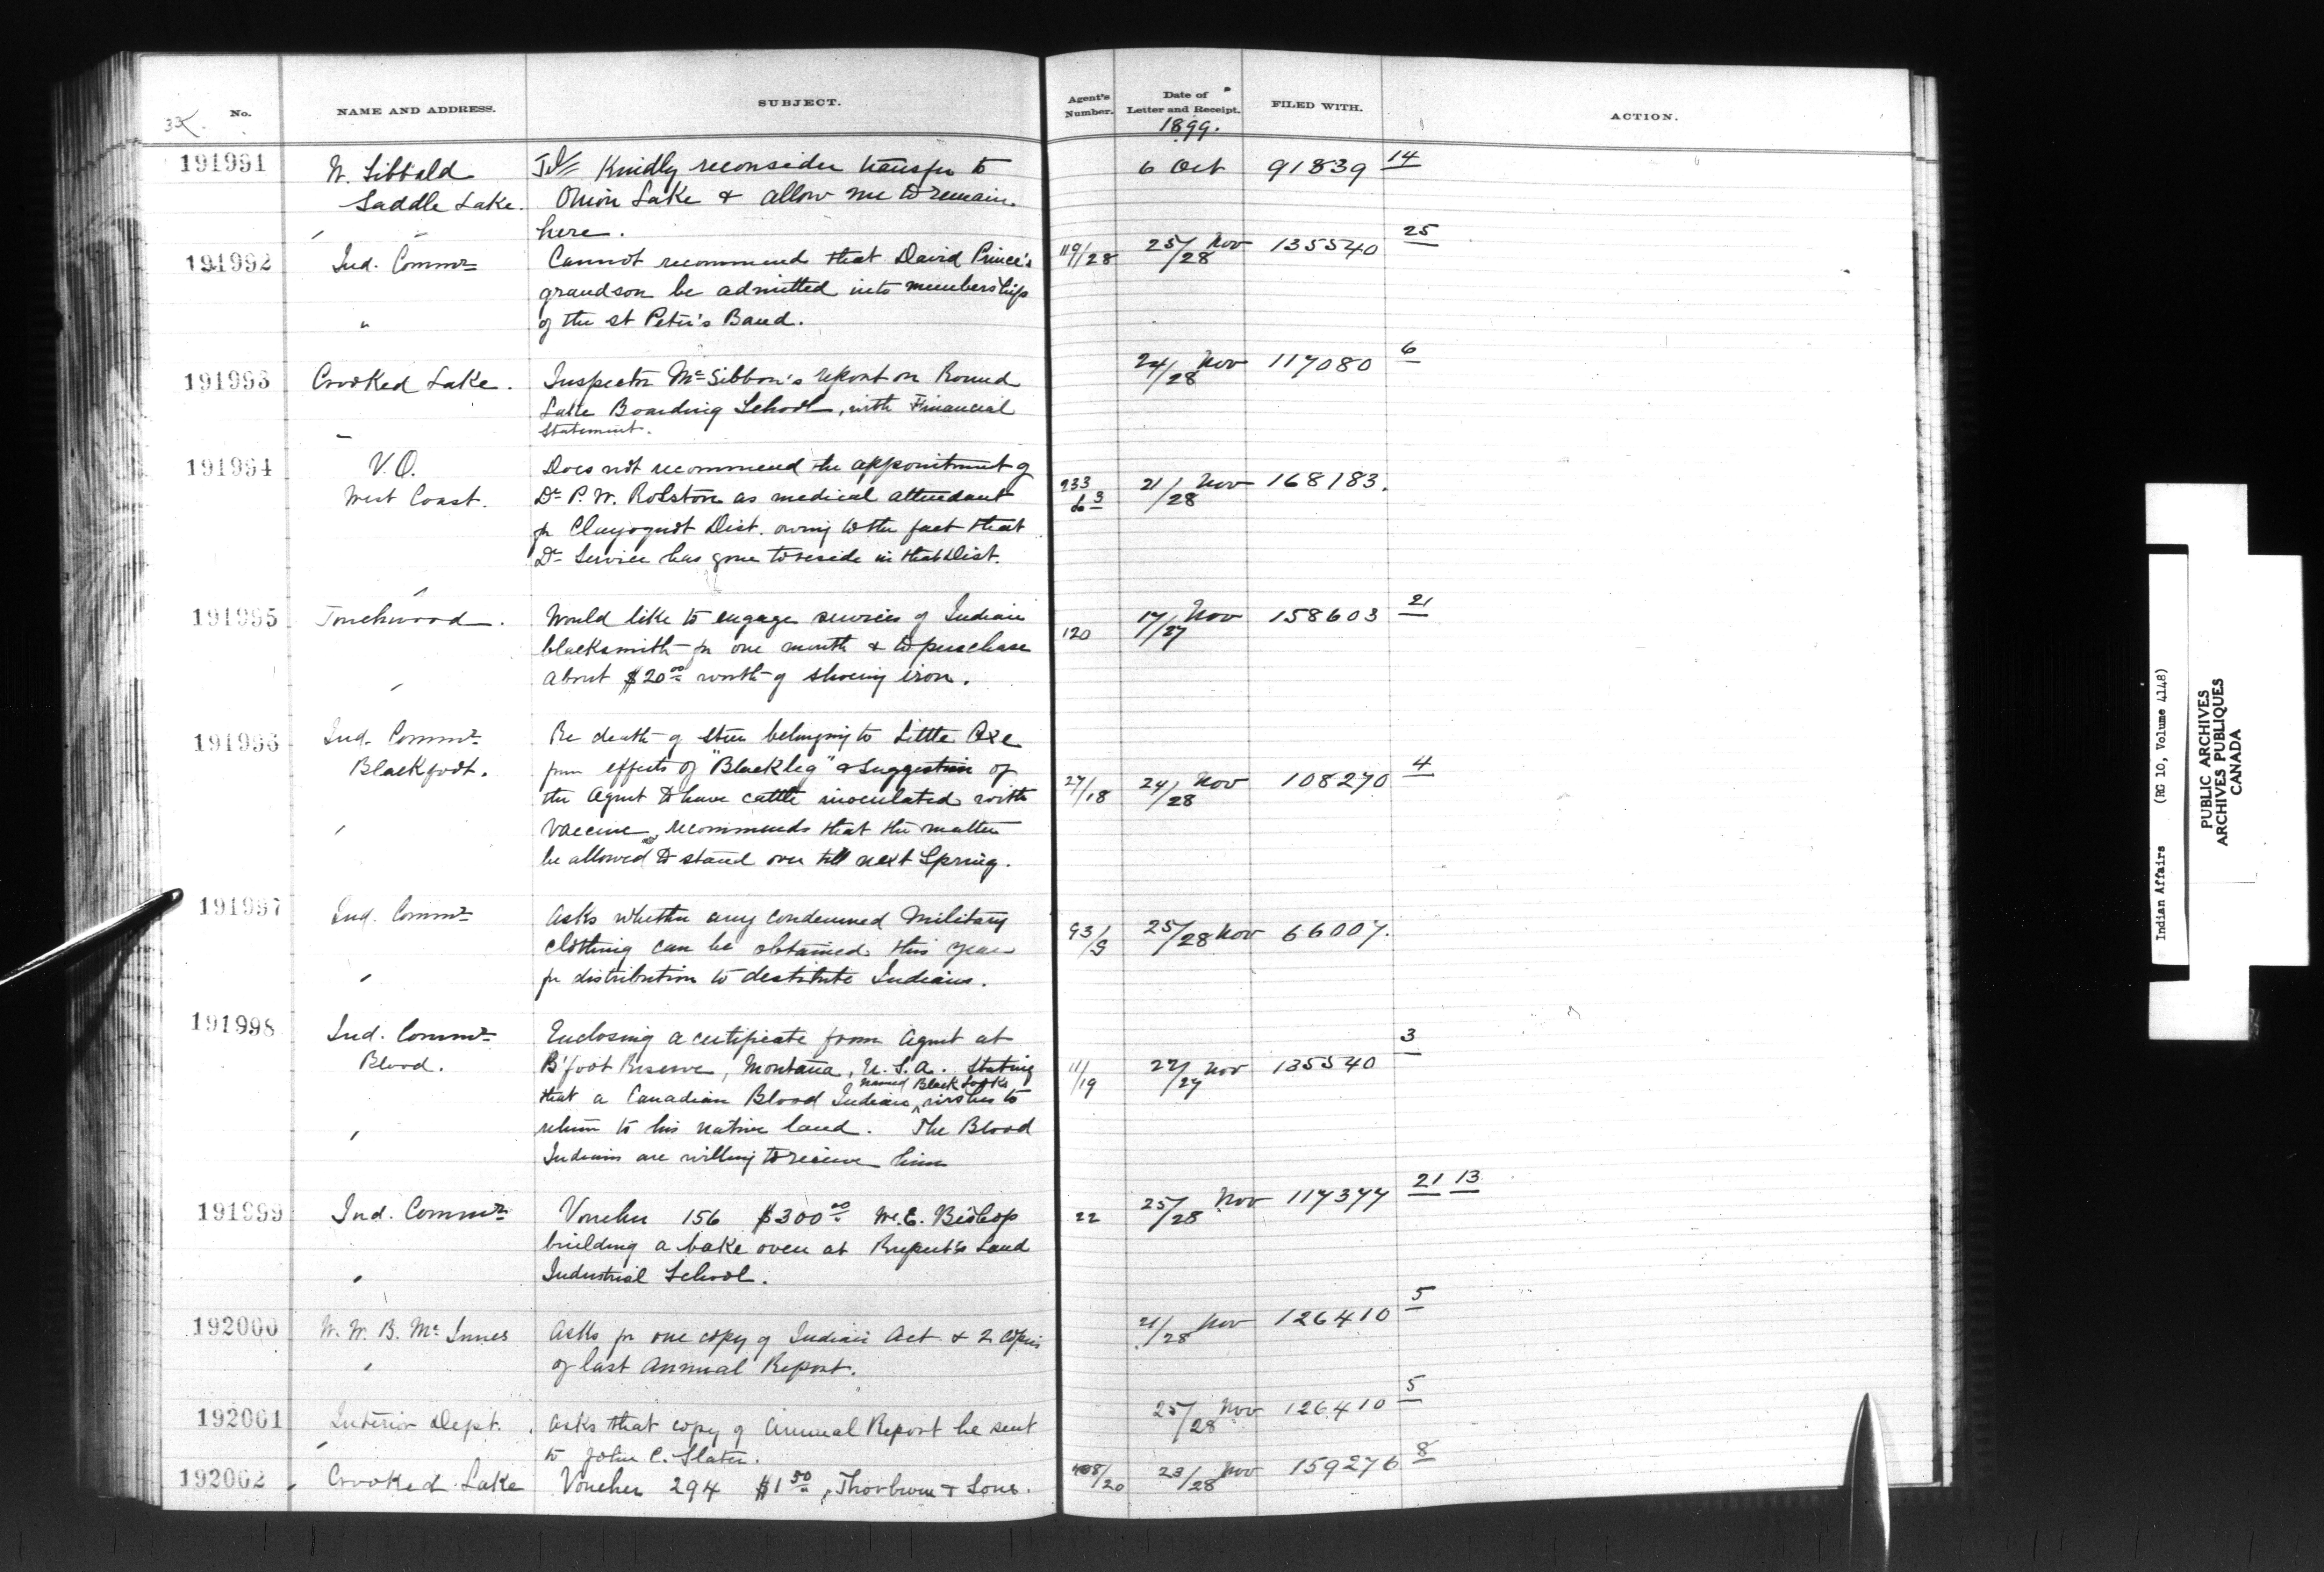 No. NAME AND ADDRESS. SUBJECT. Agent's Number. Date of Letter and Receipt. FILED WITH. ACTION.
1899.
191991 W. Sibbald Tel= Kindly reconsider transfer to 6 Oct 91839 14
Saddle Lake. Onion Lake & allow me to remain
here.
191992 Ind. Commr Cannot recommend that David Prince's 119/28 25/28 Nov 135540 25
grandson be admitted into membership
" of the St Peter's Band.
191993 Crooked Lake. Inspector McGibbon's report on Round 24/28 Nov 117080 6
Lake Boarding School, with Financial
Statement.
191994 V.O. Does not recommend the appointment of
West Coast. Dr P. W. Rolston as medical attendant 233 21/28 Nov 168183.
for Clayoquot Dist. owing to the fact that
Dr Service has gone to reside in that Dist.
191995 Touchwood. Would like to engage services of Indian 120 17/27 Nov 158603 21
blacksmith for one month & to purchase
about $20.00 worth of shoeing iron.
191996 Ind. Commr Re death of steer belonging to Little Axe
Blackfoot. from effects of "Blackleg" & suggestion of 27/18 24/28 Nov 108270 4
the Agent to have cattle inoculated with
vaccine, recommends that the matter
be allowed to stand over till next Spring.
191997 Ind. Commr Asks whether any condemned Military 93/9 25/28 Nov 66007.
clothing can be obtained this year
for distribution to destitute Indians.
191998 Ind. Commr Enclosing a certificate from Agent at 3
Blood. B'foot Reserve, Montana, U.S.A. stating 11/19 22/27 Nov 135540
named Black Looks
that a Canadian Blood Indian ^ wishes to
return to his native land. The Blood
Indians are willing to receive him
191999 Ind. Commr Voucher 156 $300.00 W. E. Bishop 22 25/28 Nov 117377 21 13
building a bake oven at Rupert's Land
Industrial School.
192000 W. W. B. McInnes Asks for one copy of Indian Act & 2 copies 21/28 Nov 126410 5
of last Annual Report.
192001 Interior Dept. Asks that copy of Annual Report be sent 25/28 Nov 126410 5
to John C. Slater.
192002 Crooked Lake Voucher 294 $1.50, Thorburn & Sons. 408/20 23/28 Nov 159276 8
Indian Affairs (RG 10, Volume 4148)
PUBLIC ARCHIVES
ARCHIVES PUBLIQUES
CANADA